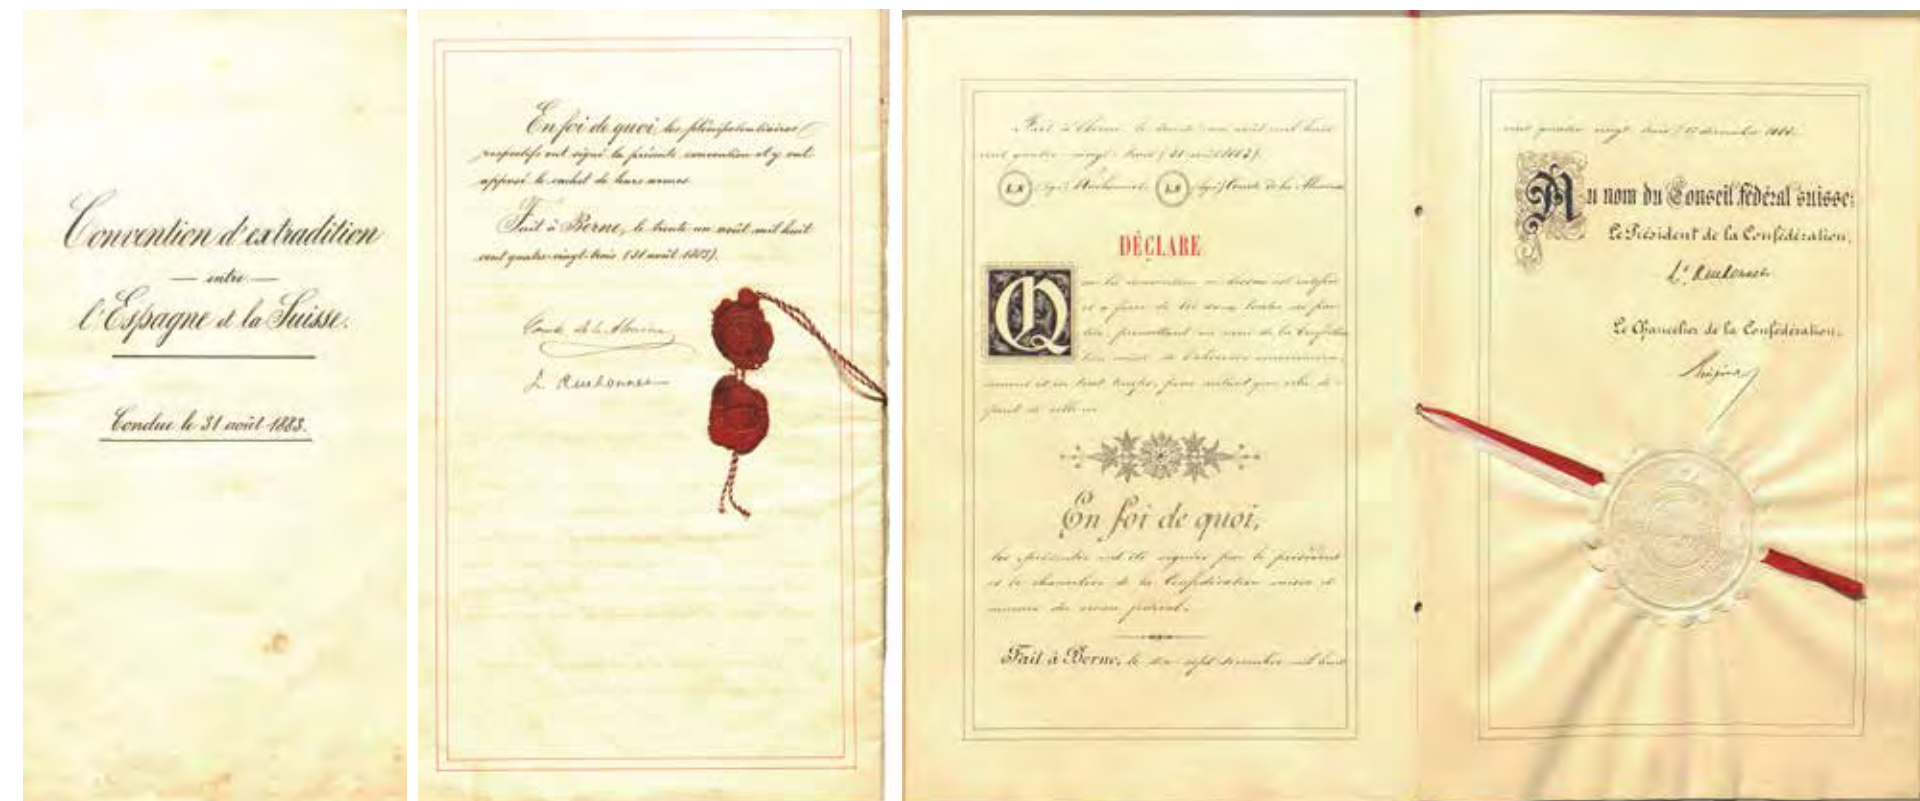 Convention d'extradition
entre
l'Espagne et la Suisse.
Conclue le 31 août 1883.
En foi de quoi, les plénipotentiaires
respectifs ont signé la présente convention et y ont
apposé le cachet de leurs armes.
Fait à Berne, le trente un août mil huit
cent quatre-vingt-trois (31 août 1883).
Comte de la Almina
L. Ruchonnet
Fait à Berne, le trente un août mil huit
cent quatre-vingt-trois (31 août 1883).
L.S (sig.) Ruchonnet L.S (sig.) Comte de la Almina
DÉCLARE
Que la convention ci-dessus est ratifiée
et a force de loi dans toutes ses par-
ties, promettant au nom de la Confédéra-
tion suisse de l'observer
et en tout temps,
En foi de quoi,
les présentes ont été signées par le président
et le chancelier de la Confédération suisse et
munies du sceau fédéral.
Fait à Berne, le dix sept décembre mil huit
cent quatre vingt trois (17 décembre 1883).
Au nom du Conseil fédéral suisse:
Le Président de la Confédération,
L. Ruchonnet
Le Chancelier de la Confédération,